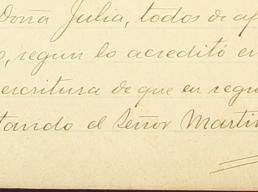 Doña Julia, todos de ap
o, segun lo acreditó en
escritura de que en regu
tando el Señor Martin